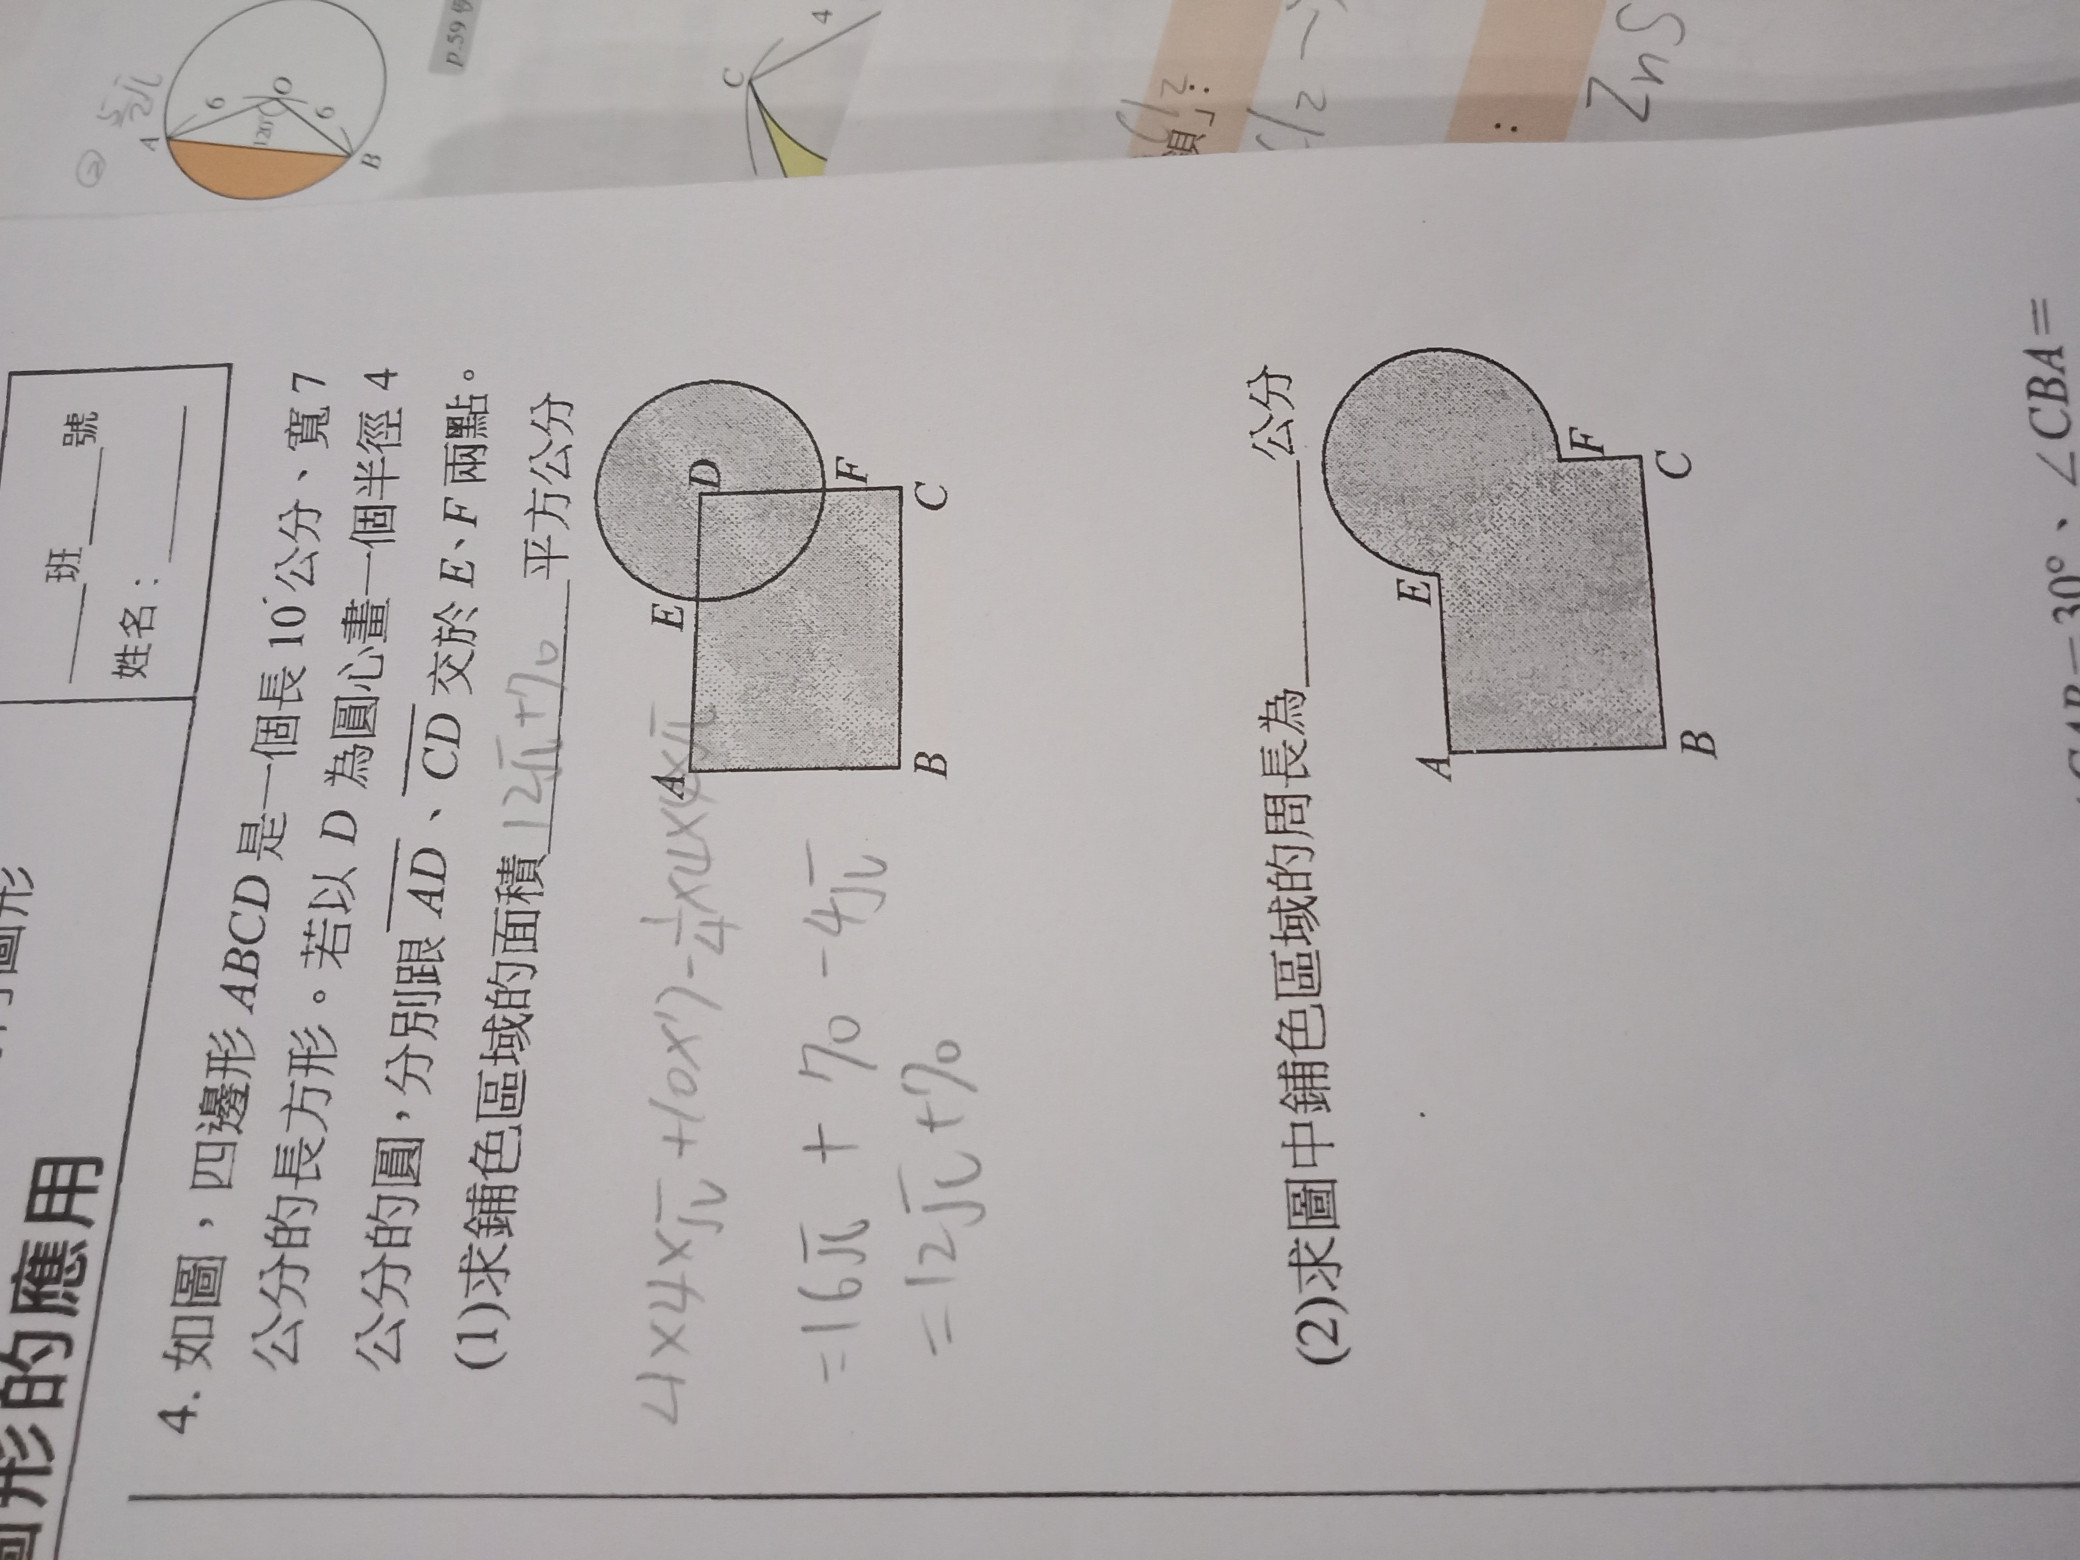 圖形的應用
班
號
姓名：
4. 如圖，四邊形 ABCD 是一個長 10 公分、寬 7
公分的長方形。若以 D 為圓心畫一個半徑 4
公分的圓，分別跟 AD、CD 交於 E、F 兩點。
(1)求鋪色區域的面積 12π+70 平方公分
4×4×π+10×7-1/4×4×4×π
=16π+70-4π
=12π+70
A
B
C
D
E
F
(2)求圖中鋪色區域的周長為 公分
A
B
C
E
F
30°、∠CBA=
A
B
O
6
6
120°
p.59
C
4